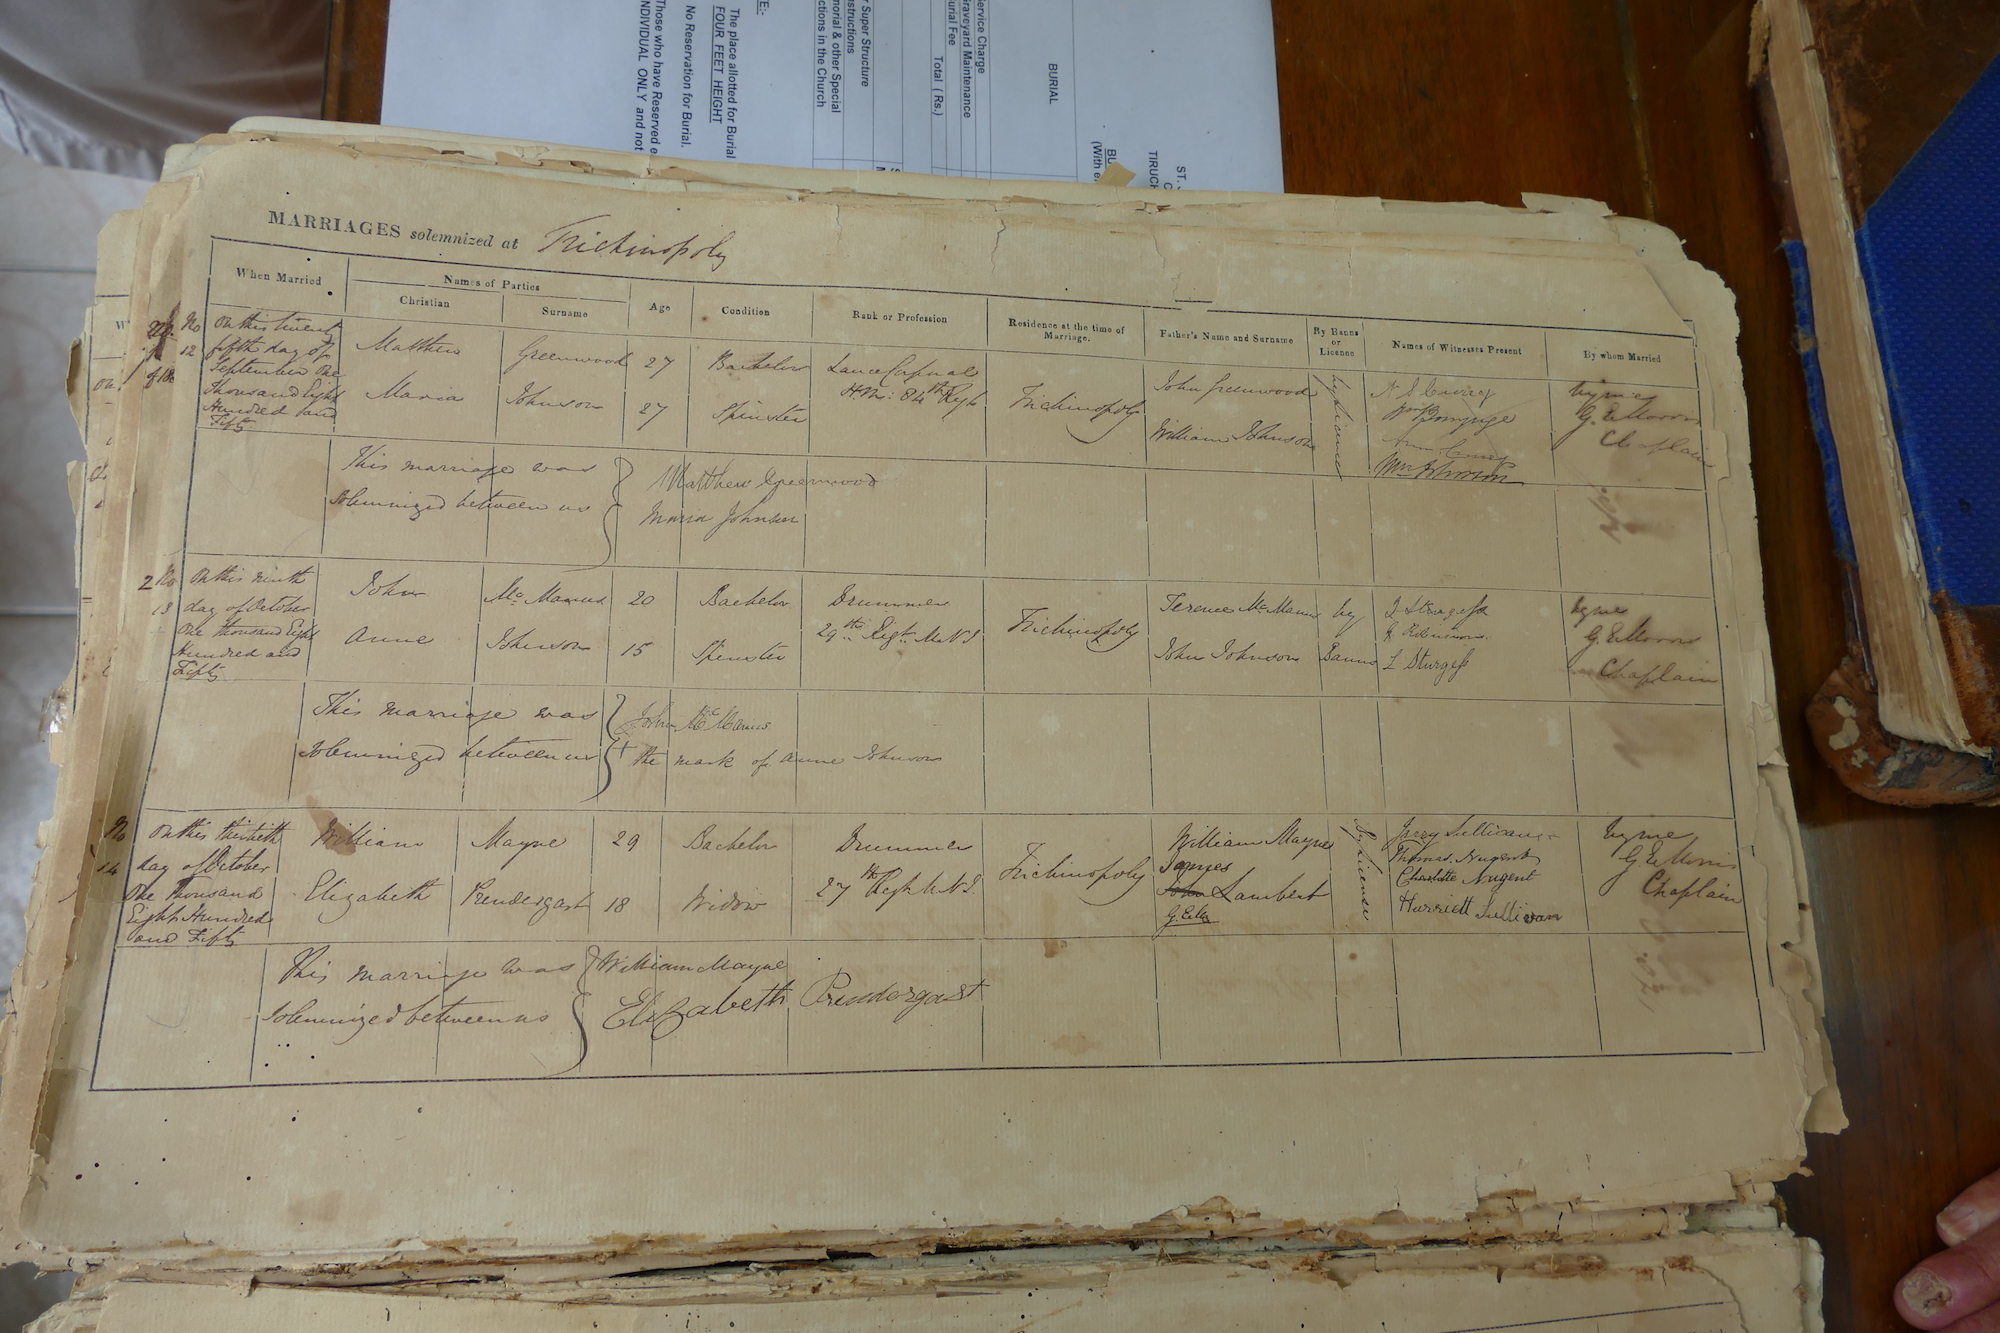 The place allotted for Burial
FOUR FEET HEIGHT
No Reservation for Burial.
Those who have Reserved
INDIVIDUAL ONLY and not
Super Structure
& other Special
in the Church
Service Charge
Graveyard Maintenance
Burial Fee
Total (Rs.)
BURIAL
ST.
MARRIAGES solemnized at Trichinopoly
When Married
Names of Parties
Christian
Surname
Age
Condition
Rank or Profession
Residence at the time of Marriage.
Father's Name and Surname
By Banns or Licence
Names of Witnesses Present
By whom Married
No 12
On this twenty
fifth day of
September One
thousand Eight
Hundred and
Fifty
Matthew Greenwood 27 Bachelor Lance Corporal
H. M: 84th Regt
Maria Johnson 27 Spinster
Trichinopoly
John Greenwood
William Johnson
by licence
Wm Johnson
by me
G. E. Morris
Chaplain
This marriage was
solemnized between us
Matthew Greenwood
Maria Johnson
No 13
On this ninth
day of October
One thousand Eight
Hundred and
Fifty
John Mc Manus 20 Bachelor Drummer
29th Regt. M. N. I.
Anne Johnson 15 Spinster
Trichinopoly
Terence Mc Manus
John Johnson
by
Banns
J Sturgess
Robinson
L Sturgess
by me
G. E. Morris
Chaplain
This marriage was
solemnized between us
John Mc Manus
+ the mark of Anne Johnson
No 14
On this thirtieth
day of October
One Thousand
Eight Hundred
and Fifty
William Mayne 29 Bachelor Drummer
27th Regt N. I.
Elizabeth Prendergast 18 Widow
Trichinopoly
William Mayne
James
John Lambert
G. E. M.
By licence
Sullivan
Thomas Nugent
Charlotte Nugent
Harriett Sullivan
by me
G. E. Morris
Chaplain
This marriage was
solemnized between us
William Mayne
Elizabeth Prendergast